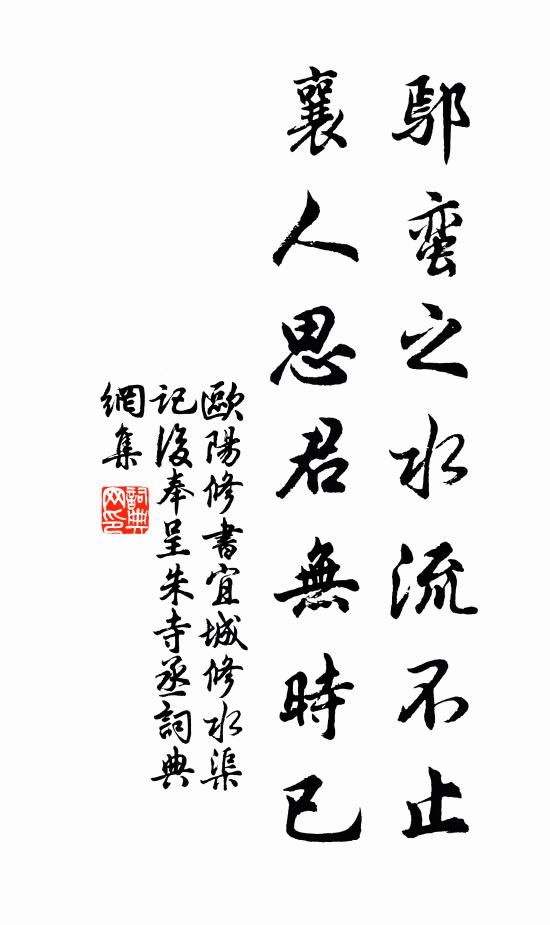 鄢蛮之水流不止
襄人思君無時已
歐陽修書宜城修水渠
記後奉呈朱寺丞詞典
網集
詞典
网印